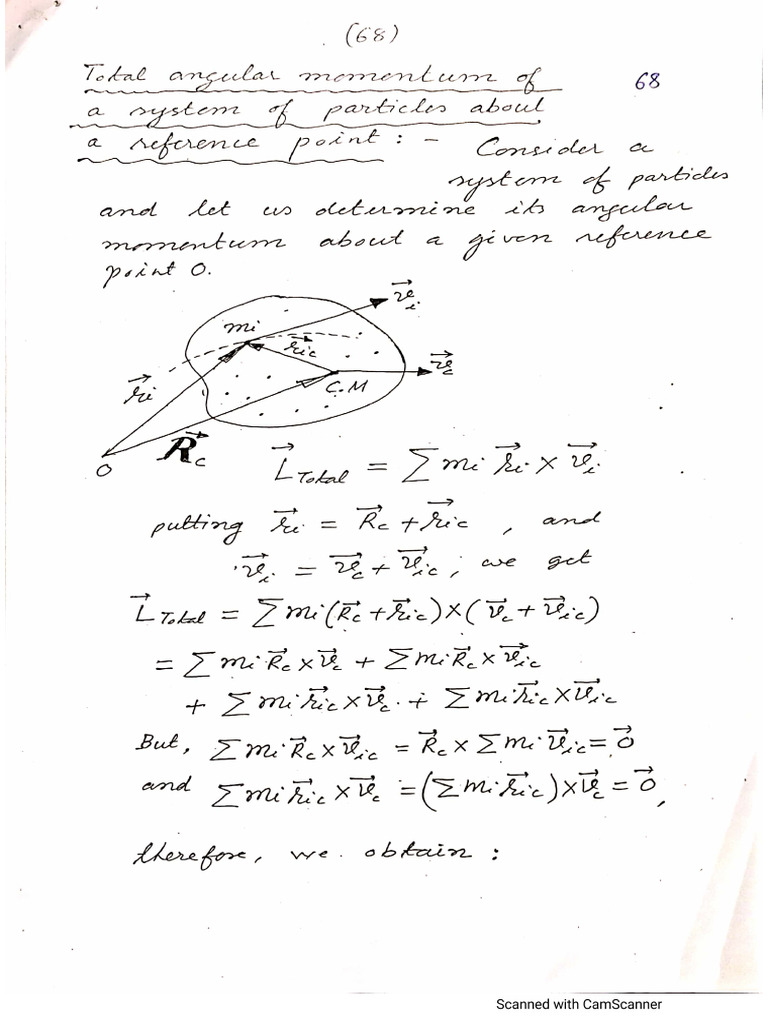 (68)
Total angular momentum of
68
a system of particles about
a reference point : - Consider a
system of particles
and let us determine its angular
momentum about a given reference
point O.
v⃗ᵢ
mi
r⃗ic
v⃗c
r⃗i
C.M
R⃗c
O
L⃗Total = ∑ mi r⃗i × v⃗i
putting r⃗i = R⃗c + r⃗ic , and
v⃗i = v⃗c + v⃗ic , we get
L⃗Total = ∑ mi (R⃗c + r⃗ic) × (v⃗c + v⃗ic)
= ∑ mi R⃗c × v⃗c + ∑ mi R⃗c × v⃗ic
+ ∑ mi r⃗ic × v⃗c + ∑ mi r⃗ic × v⃗ic
But, ∑ mi R⃗c × v⃗ic = R⃗c × ∑ mi v⃗ic = 0⃗
and ∑ mi r⃗ic × v⃗c = (∑ mi r⃗ic) × v⃗c = 0⃗ ,
therefore, we obtain :
Scanned with CamScanner